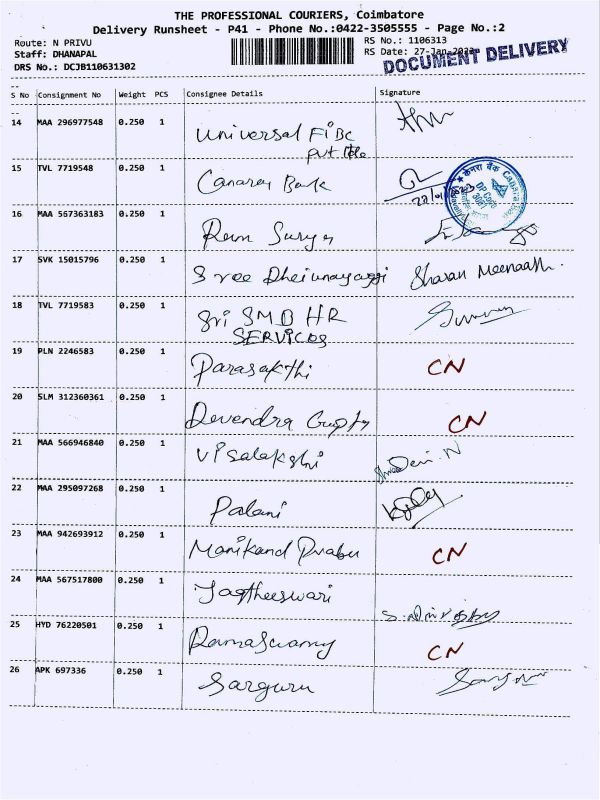 THE PROFESSIONAL COURIERS, Coimbatore
Delivery Runsheet - P41 - Phone No.:0422-3505555 - Page No.:2
Route: N PRIVU
RS No.: 1106313
Staff: DHANAPAL
RS Date: 27-Jan-2023
DRS No.: DCJB110631302
DOCUMENT DELIVERY
S No Consignment No Weight PCS Consignee Details Signature
14 MAA 296977548 0.250 1 Universal FiBC
pvt ltd
15 TVL 7719548 0.250 1 Canara Bank
केनरा बैंक Canara
DP Code
16 MAA 567363183 0.250 1 Ram Surya
17 SVK 15015796 0.250 1 Sree Dheivanayagi Sharan Meenaath.
18 TVL 7719583 0.250 1 Sri SMB HR
SERVICES
19 PLN 2246583 0.250 1 Parasakthi CN
20 SLM 312360361 0.250 1 Devendra Gupta CN
21 MAA 566946840 0.250 1 Visalakshi
22 MAA 295097268 0.250 1 Palani
23 MAA 942693912 0.250 1 Manikand Prabu CN
24 MAA 567517800 0.250 1 Jagtheeswari
25 HYD 76220501 0.250 1 Ramaswamy CN
26 APK 697336 0.250 1 Sarguru